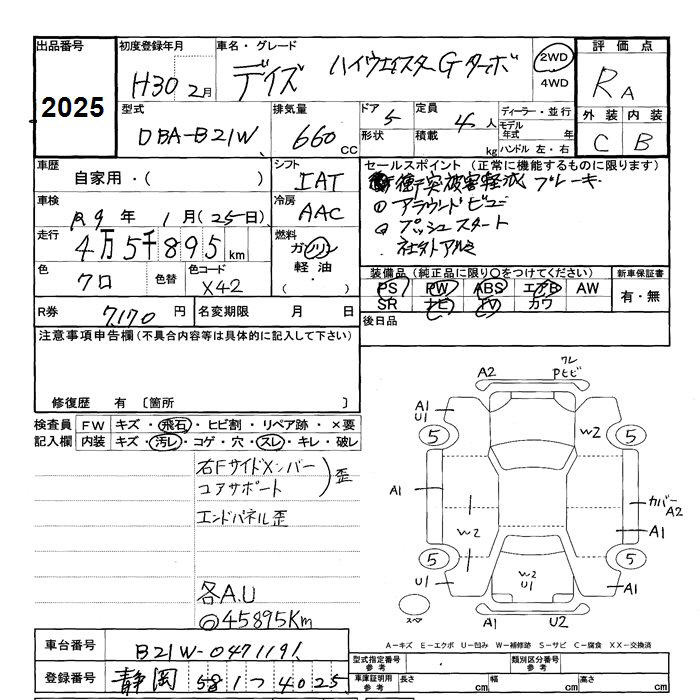 出品番号 初度登録年月 車名・グレード 評価点
2025 H30 2月 デイズ ハイウェイスターGターボ 2WD 4WD RA
型式 排気量 ドア 5 定員 4人 ディーラー・並行 外装 内装
DBA-B21W 660 CC 形状 積載 kg モデル年式 年 ハンドル 左・右 C B
車歴 自家用・( ) シフト IAT セールスポイント (正常に機能するものに限ります)
衝突被害軽減ブレーキ
車検 R9年 1月(25日) 冷房 AAC アラウンドビュー
プッシュスタート
走行 4万5千895km 燃料 ガソリン 軽油・( ) 社外アルミ
色 クロ 色替 色コード X42 装備品 (純正品に限り○をつけてください) 新車保証書
PS PW ABS エアB AW 有・無
SR ナビ TV カワ
R券 7,170円 名変期限 月 日 後日品
注意事項申告欄 (不具合内容等は具体的に記入して下さい)
修復歴 有 〔箇所 〕
検査員 FW キズ・飛石・ヒビ割・リペア跡・×要
記入欄 内装 キズ・汚レ・コゲ・穴・スレ・キレ・破レ
右Fサイドメンバー
コアサポート
歪
エンドパネル歪
各A.U
◎45895Km
A2 ワレ Pヒビ
A1 U1 W2
5 5
A1 カバー A2
W2 A1
5 5
U1 W2 U1 A1
スペア A1 U2
A-キズ E-エクボ U-凹み W-補修跡 S-サビ C-腐食 XX-交換済
車台番号 B21W-0471191
登録番号 静岡 581 つ 4025
型式指定番号 参考 類別区分番号 参考
車庫証明用 参考 長さ cm 幅 cm 高さ cm